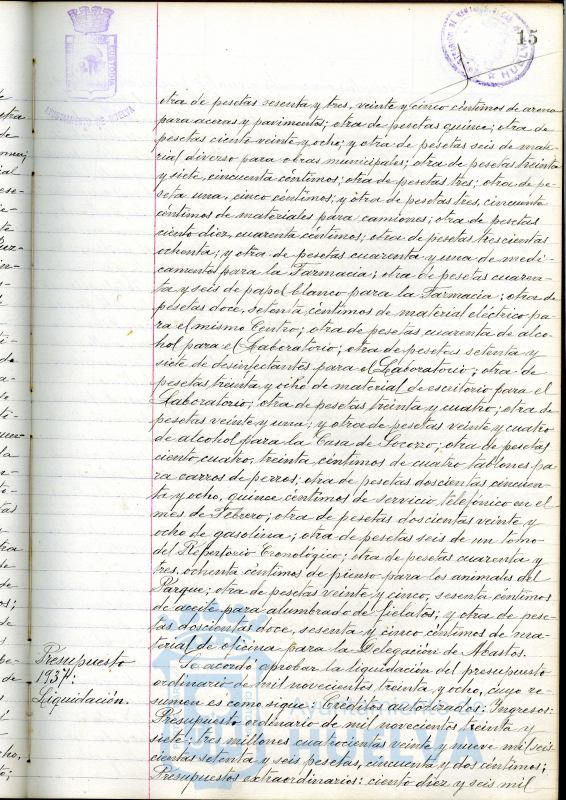 15
AYUNTAMIENTO DE HUELVA
otra de pesetas sesenta y tres, veinte y cinco céntimos de arena
para aceras y pavimentos; otra de pesetas quince; otra de
pesetas ciento veinte y ocho; y otra de pesetas seis de mate
rial diverso para obras municipales; otra de pesetas treinta
y siete, cincuenta céntimos; otra de pesetas tres; otra de pe-
seta una, cinco céntimos; y otra de pesetas tres, cincuenta
céntimos de materiales para camiones; otra de pesetas
ciento diez, cuarenta céntimos; otra de pesetas trescientas
ochenta; y otra de pesetas cuarenta y una de medi-
camentos para la Farmacia; otra de pesetas cuaren-
ta y seis de papel blanco para la Farmacia; otra de
pesetas doce, setenta céntimos de material electrico pa-
ra el mismo Centro; otra de pesetas cuarenta de alco-
hol para el Laboratorio; otra de pesetas setenta y
siete de desinfectantes para el Laboratorio; otra de
pesetas treinta y ocho de material de escritorio para el
Laboratorio; otra de pesetas treinta y cuatro; otra de
pesetas veinte y una; y otra de pesetas veinte y cuatro
de alcohol para la Casa de Socorro; otra de pesetas
ciento cuatro, treinta céntimos de cuatro tablones pa-
ra carros de perros; otra de pesetas doscientas cincuen-
ta y ocho, quince céntimos de servicio telefónico en el
mes de Febrero; otra de pesetas doscientas veinte y
ocho de gasolina; otra de pesetas seis de un tomo
del Repertorio Cronológico; otra de pesetas cuarenta y
tres, ochenta céntimos de pienso para los animales del
Parque; otra de pesetas veinte y cinco, sesenta céntimos
de aceite para alumbrado de fielatos; y otra de pese-
tas doscientas doce, sesenta y cinco céntimos de ma-
terial de oficina para la Delegación de Abastos.
Presupuesto
1937:
Liquidación.
Se acordó aprobar la liquidación del presupuesto
ordinario de mil novecientos treinta y ocho, cuyo re-
sumen es como sigue: Créditos autorizados: Ingresos:
Presupuesto ordinario de mil novecientos treinta y
siete: tres millones cuatrocientas veinte y nueve mil seis-
cientas setenta y seis pesetas, cincuenta y dos céntimos;
Presupuestos extraordinarios: ciento diez y seis mil
HUELVA